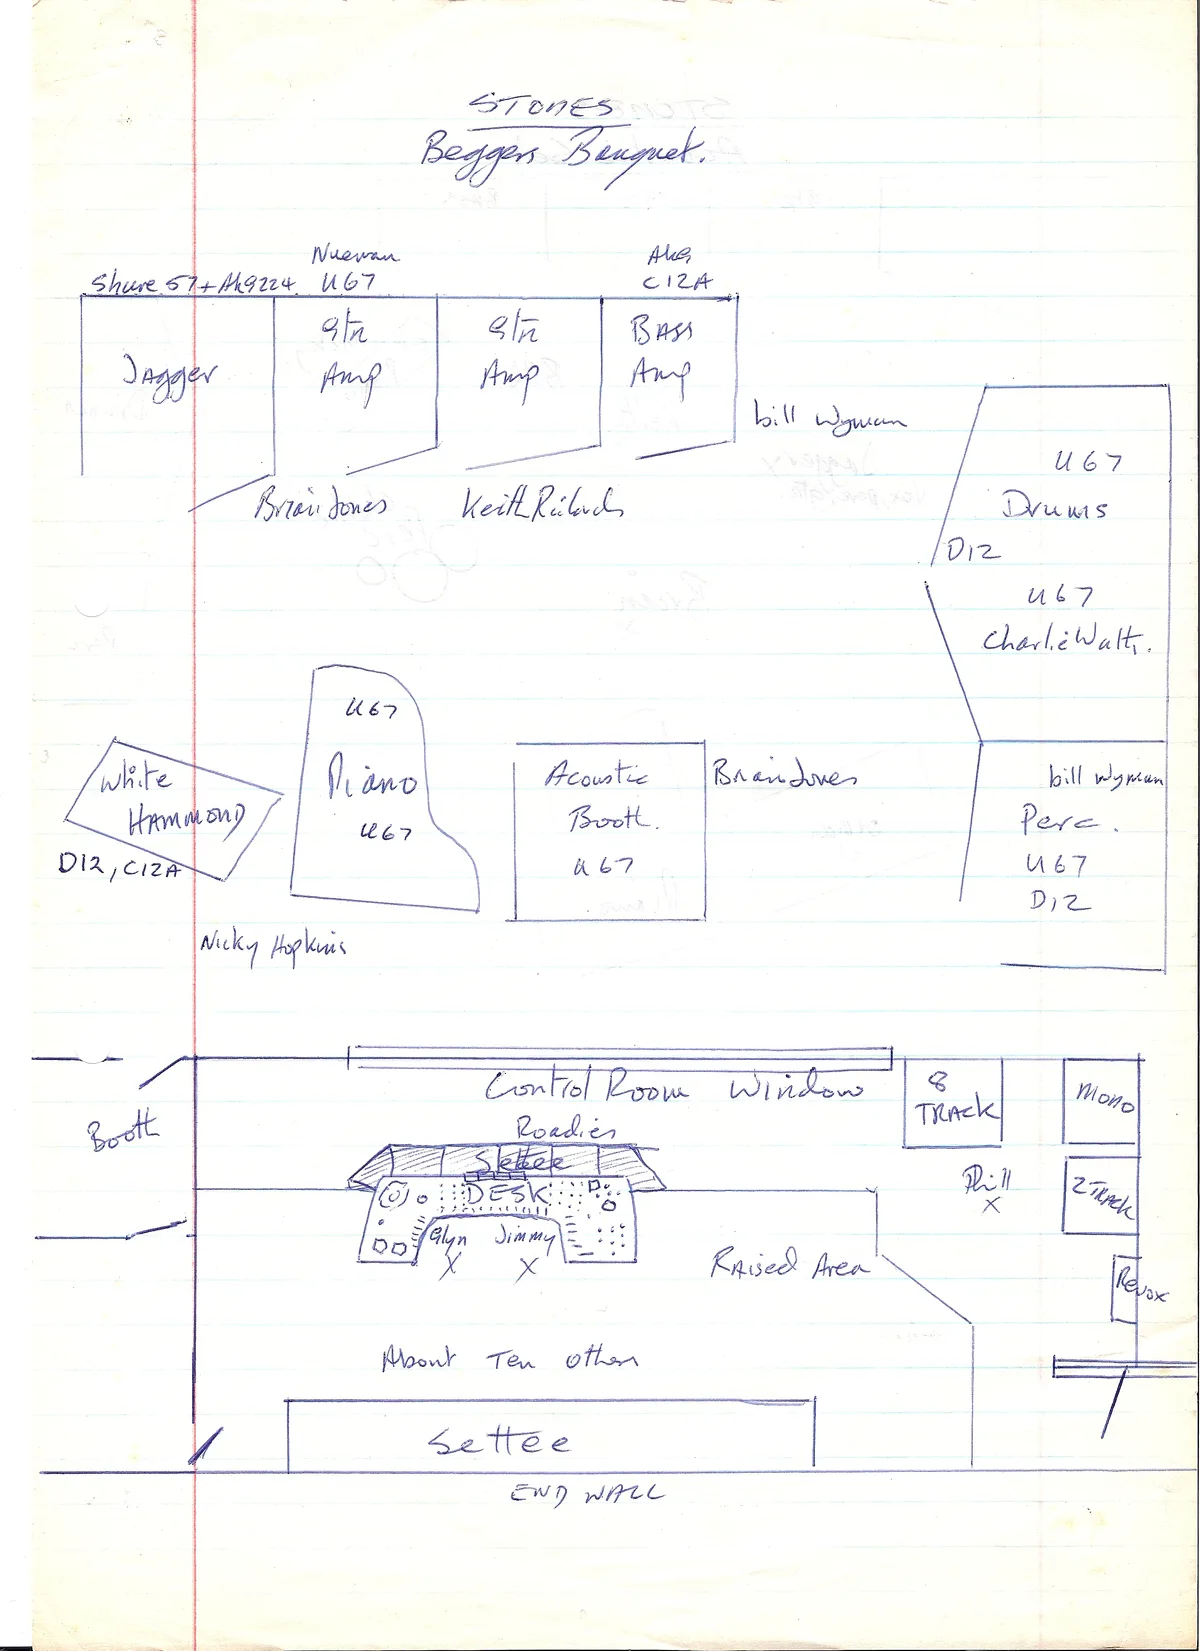 STONES
Beggers Banquet.
Shure 57 + Akg224
Nueman
U67
Akg
C12A
Jagger
Gtr
Amp
Gtr
Amp
BASS
Amp
bill Wyman
Brian Jones
Keith Richards
U67
Drums
D12
U67
Charlie Watts.
White
HAMMOND
D12, C12A
U67
Piano
U67
Nicky Hopkins
Acoustic
Booth.
U67
Brain Jones
bill Wyman
Perc.
U67
D12
Control Room Window
Booth
Roadies
Settee
DESK
Glyn Jimmy
X X
8
TRACK
Mono
Phill
X
2 TRACK
Revox
Raised Area
About Ten others
Settee
END WALL